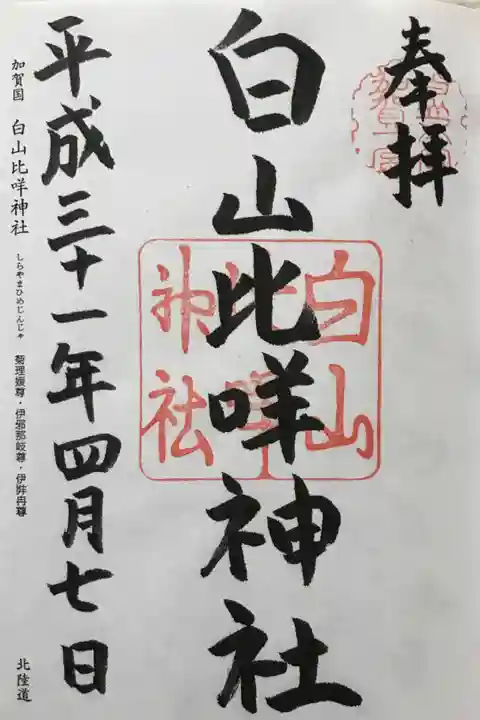 奉拝
白山比咩神社
白山比咩神社
平成三十一年四月七日
加賀国 白山比咩神社 しらやまひめじんじゃ 菊理媛尊・伊邪那岐尊・伊弉冉尊 北陸道